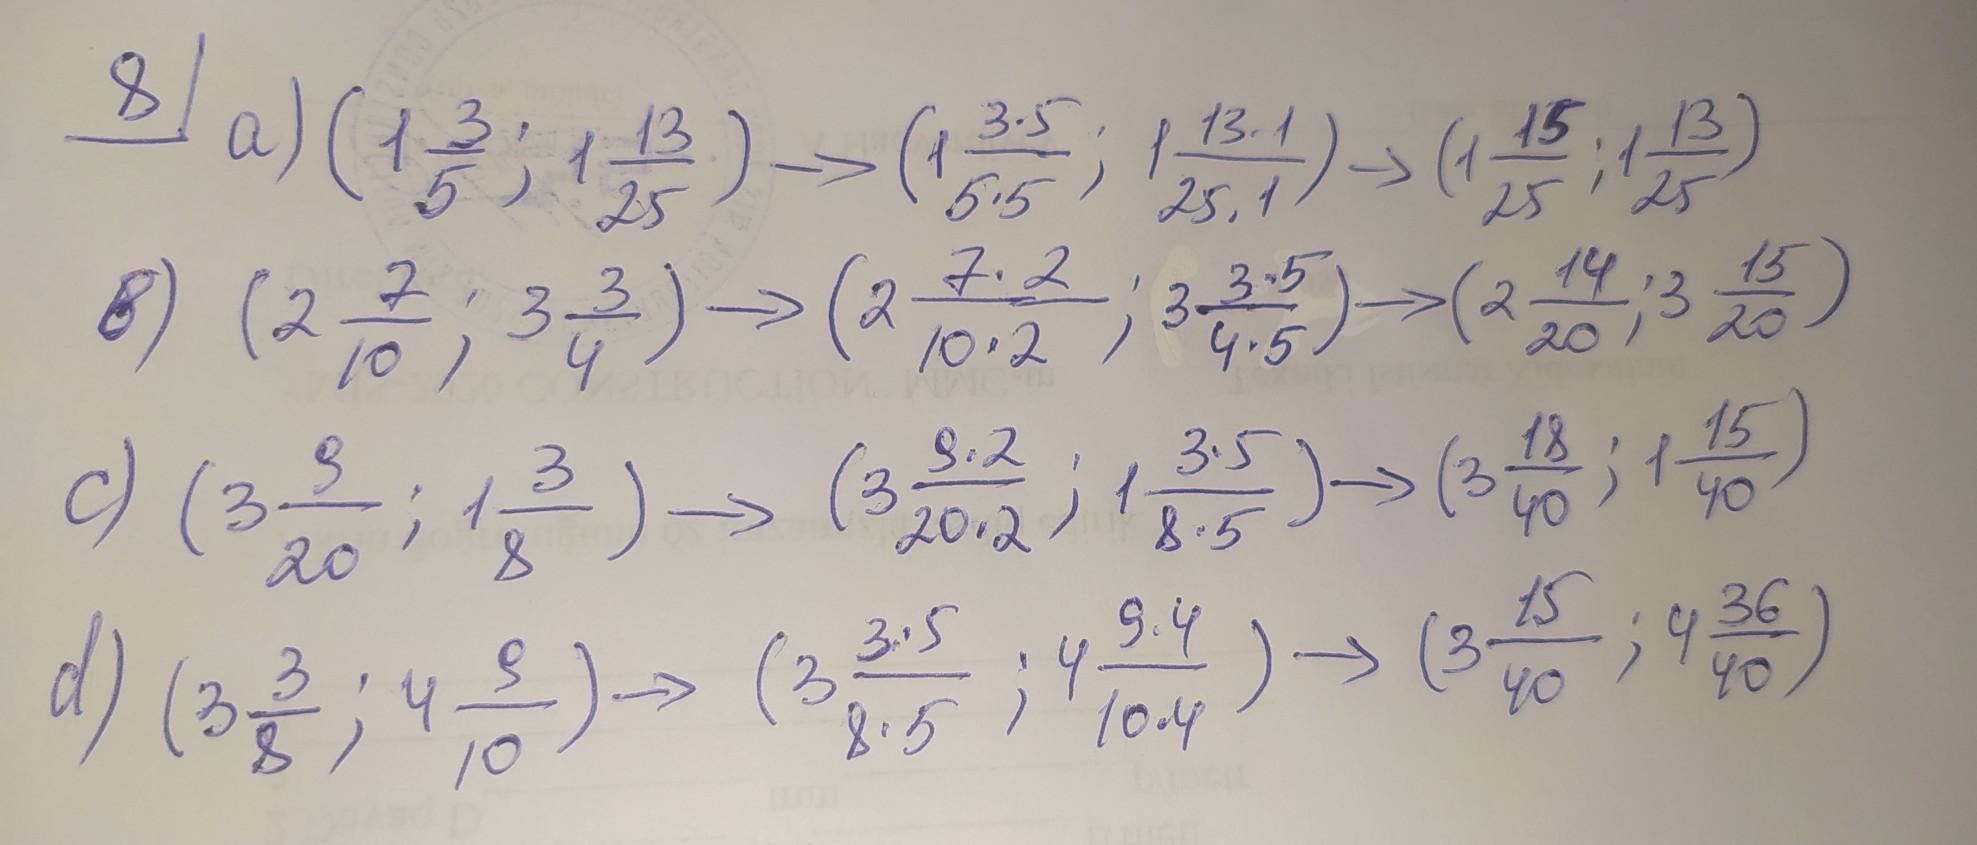 8 a) (1 3/5 ; 1 13/25) → (1 3·5/5·5 ; 1 13·1/25·1) → (1 15/25 ; 1 13/25)
в) (2 7/10 ; 3 3/4) → (2 7·2/10·2 ; 3 3·5/4·5) → (2 14/20 ; 3 15/20)
c) (3 9/20 ; 1 3/8) → (3 9·2/20·2 ; 1 3·5/8·5) → (3 18/40 ; 1 15/40)
d) (3 3/8 ; 4 9/10) → (3 3·5/8·5 ; 4 9·4/10·4) → (3 15/40 ; 4 36/40)